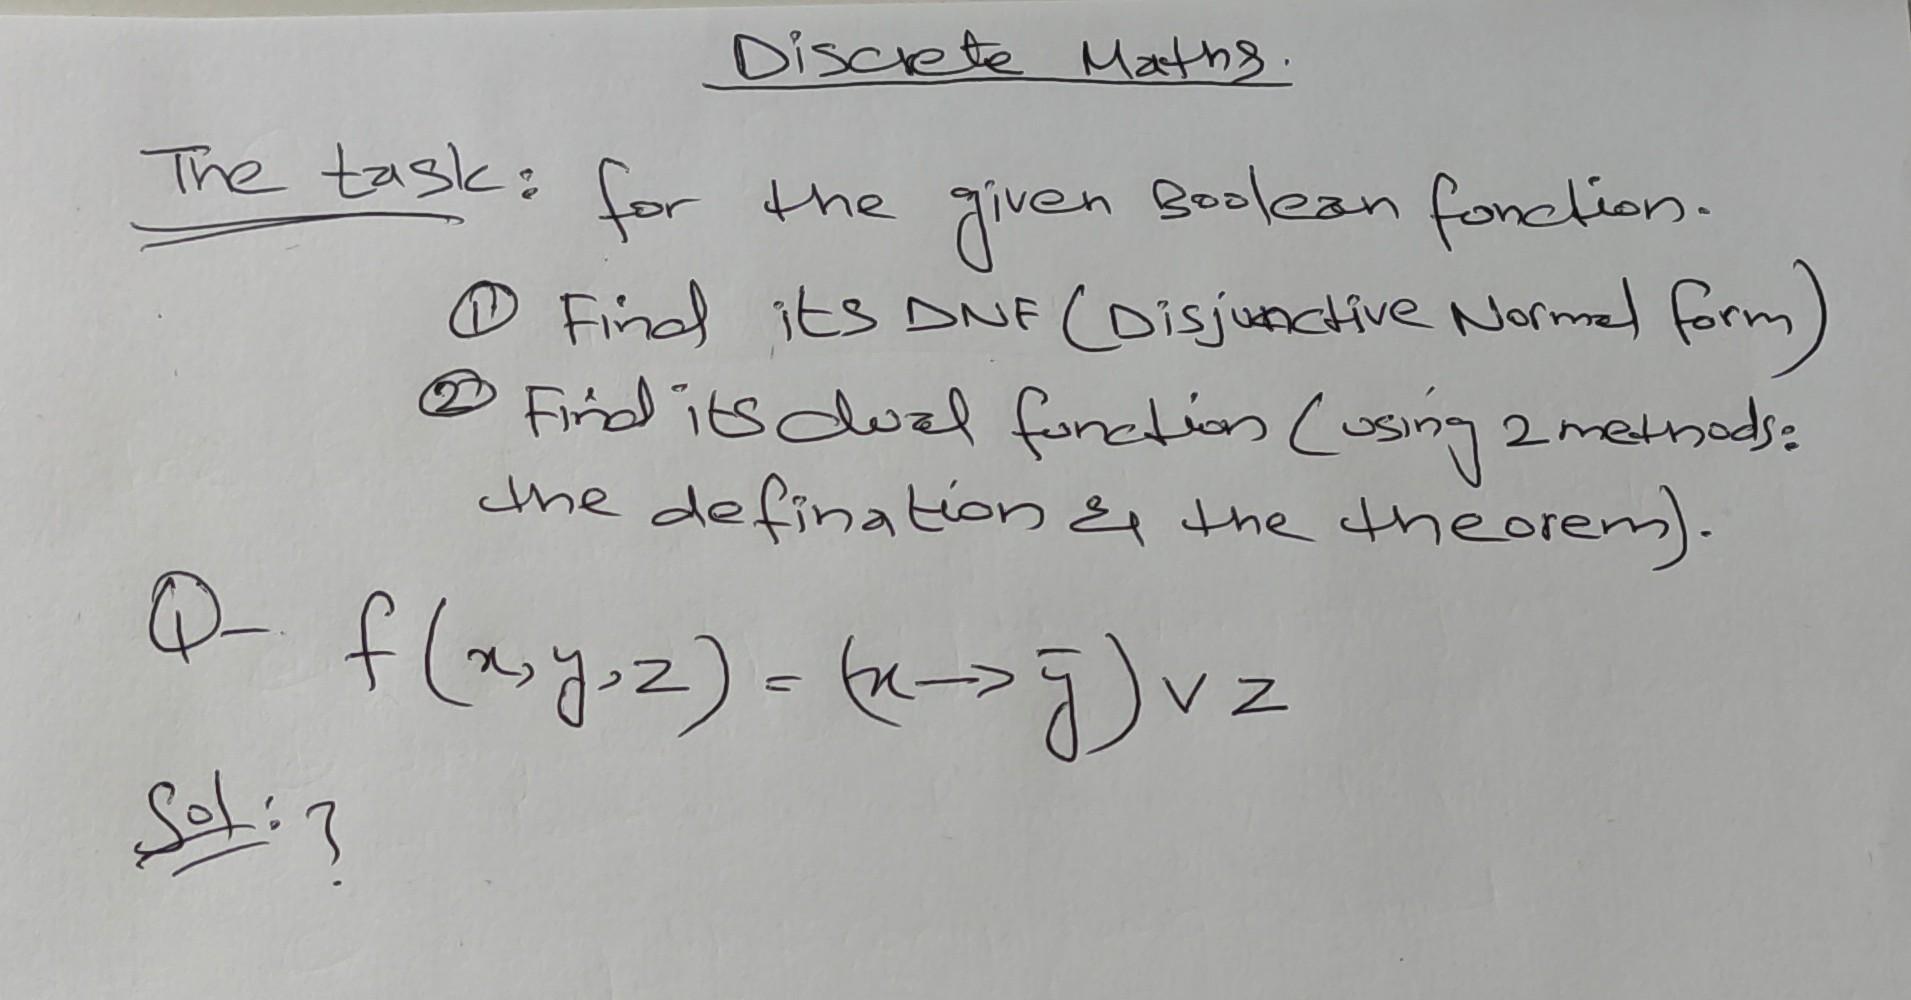 Discrete Maths.
The task: for the given Boolean fonction.
① Find its DNF (Disjunctive Normal form)
② Find its dual function (using 2 methods:
the defination & the theorem).
Q- f(x,y,z) = (x→ȳ) ∨ z
Sol: ?